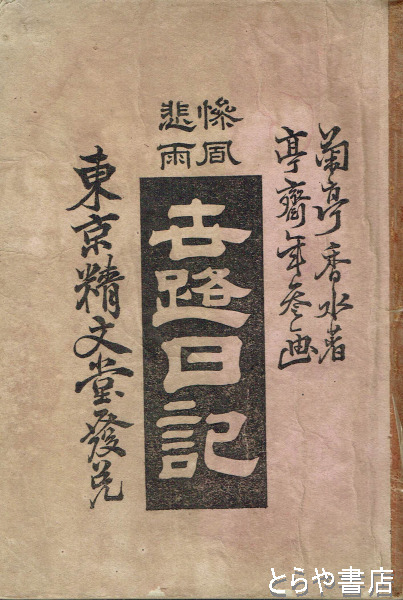 菊亭香水著
亭齋年参画
惨風
悲雨
世路日記
東京精文堂發兌
とらや書店